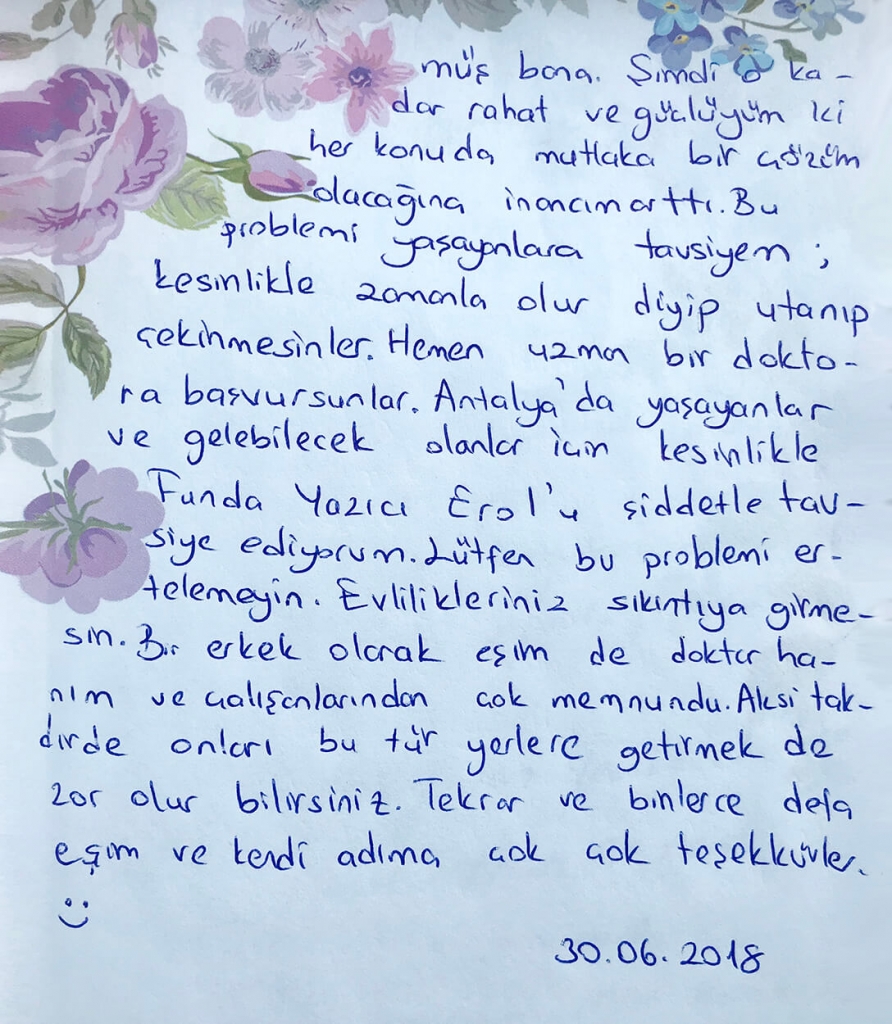 müş bana. Şimdi o ka-
dar rahat ve güçlüyüm ki
her konuda mutlaka bir çözüm
olacağına inancım arttı. Bu
problemi yaşayanlara tavsiyem ;
kesinlikle zamanla olur diyip utanıp
çekinmesinler. Hemen uzman bir dokto-
ra başvursunlar. Antalya'da yaşayanlar
ve gelebilecek olanlar için kesinlikle
Funda Yazıcı Erol'u şiddetle tav-
siye ediyorum. Lütfen bu problemi er-
telemeyin. Evlilikleriniz sıkıntıya girme-
sin. Bir erkek olarak eşim de doktor ha-
nım ve çalışanlarından çok memnundu. Aksi tak-
dirde onları bu tür yerlere getirmek de
zor olur bilirsiniz. Tekrar ve binlerce defa
eşim ve kendi adıma çok çok teşekkürler.
:)
30.06.2018